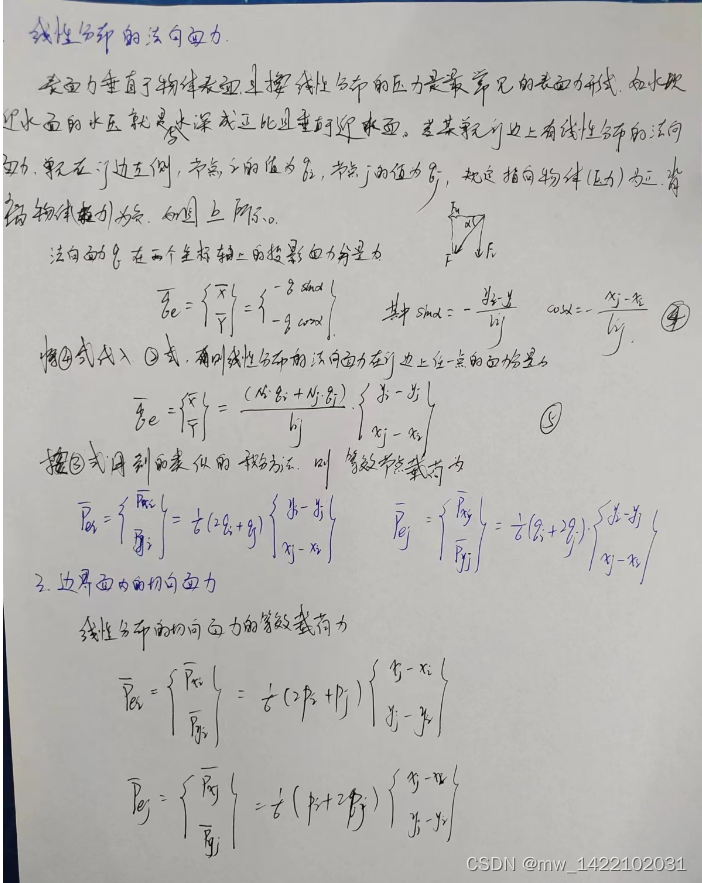 线性分布的法向面力.
表面力垂直于物体表面,且按线性分布的压力是最常见的表面力形式.如水坝
迎水面的水压就是与水深成正比且垂直于迎水面。若某单元ij边上有线性分布的法向
面力.单元在ij边左侧,节点i的值为qi,节点j的值为qj,规定指向物体(压力)为正.背
物体(拉力)为负.如图上所示。
α
F
法向面力q在两个坐标轴上的投影面力分量为
q̄e = {X̄ Ȳ} = {-q sinα -q cosα} 其中 sinα = - (yi-yj)/lij cosα = - (xj-xi)/lij. ④
将④式代入②式.有则线性分布的法向面力在ij边上任一点的面力分量为
q̄e = {X̄ Ȳ} = (Ni·qi + Nj·qj)/lij · {yi-yj xj-xi} ⑤
按③式用到的类似的积分方法.则等效节点载荷为
P̄ei = {P̄xi P̄yi} = 1/6 (2qi+qj) {yi-yj xj-xi} P̄ej = {P̄xj P̄yj} = 1/6 (qi+2qj) · {yi-yj xj-xi}
2.边界面力的切向面力
线性分布的切向面力的等效载荷为
P̄ei = {P̄xi P̄yi} = 1/6 (2pi+pj) {xj-xi yj-yi}
P̄ej = {P̄xj P̄yj} = 1/6 (pi+2pj) {xj-xi yj-yi}
CSDN @mw_1422102031